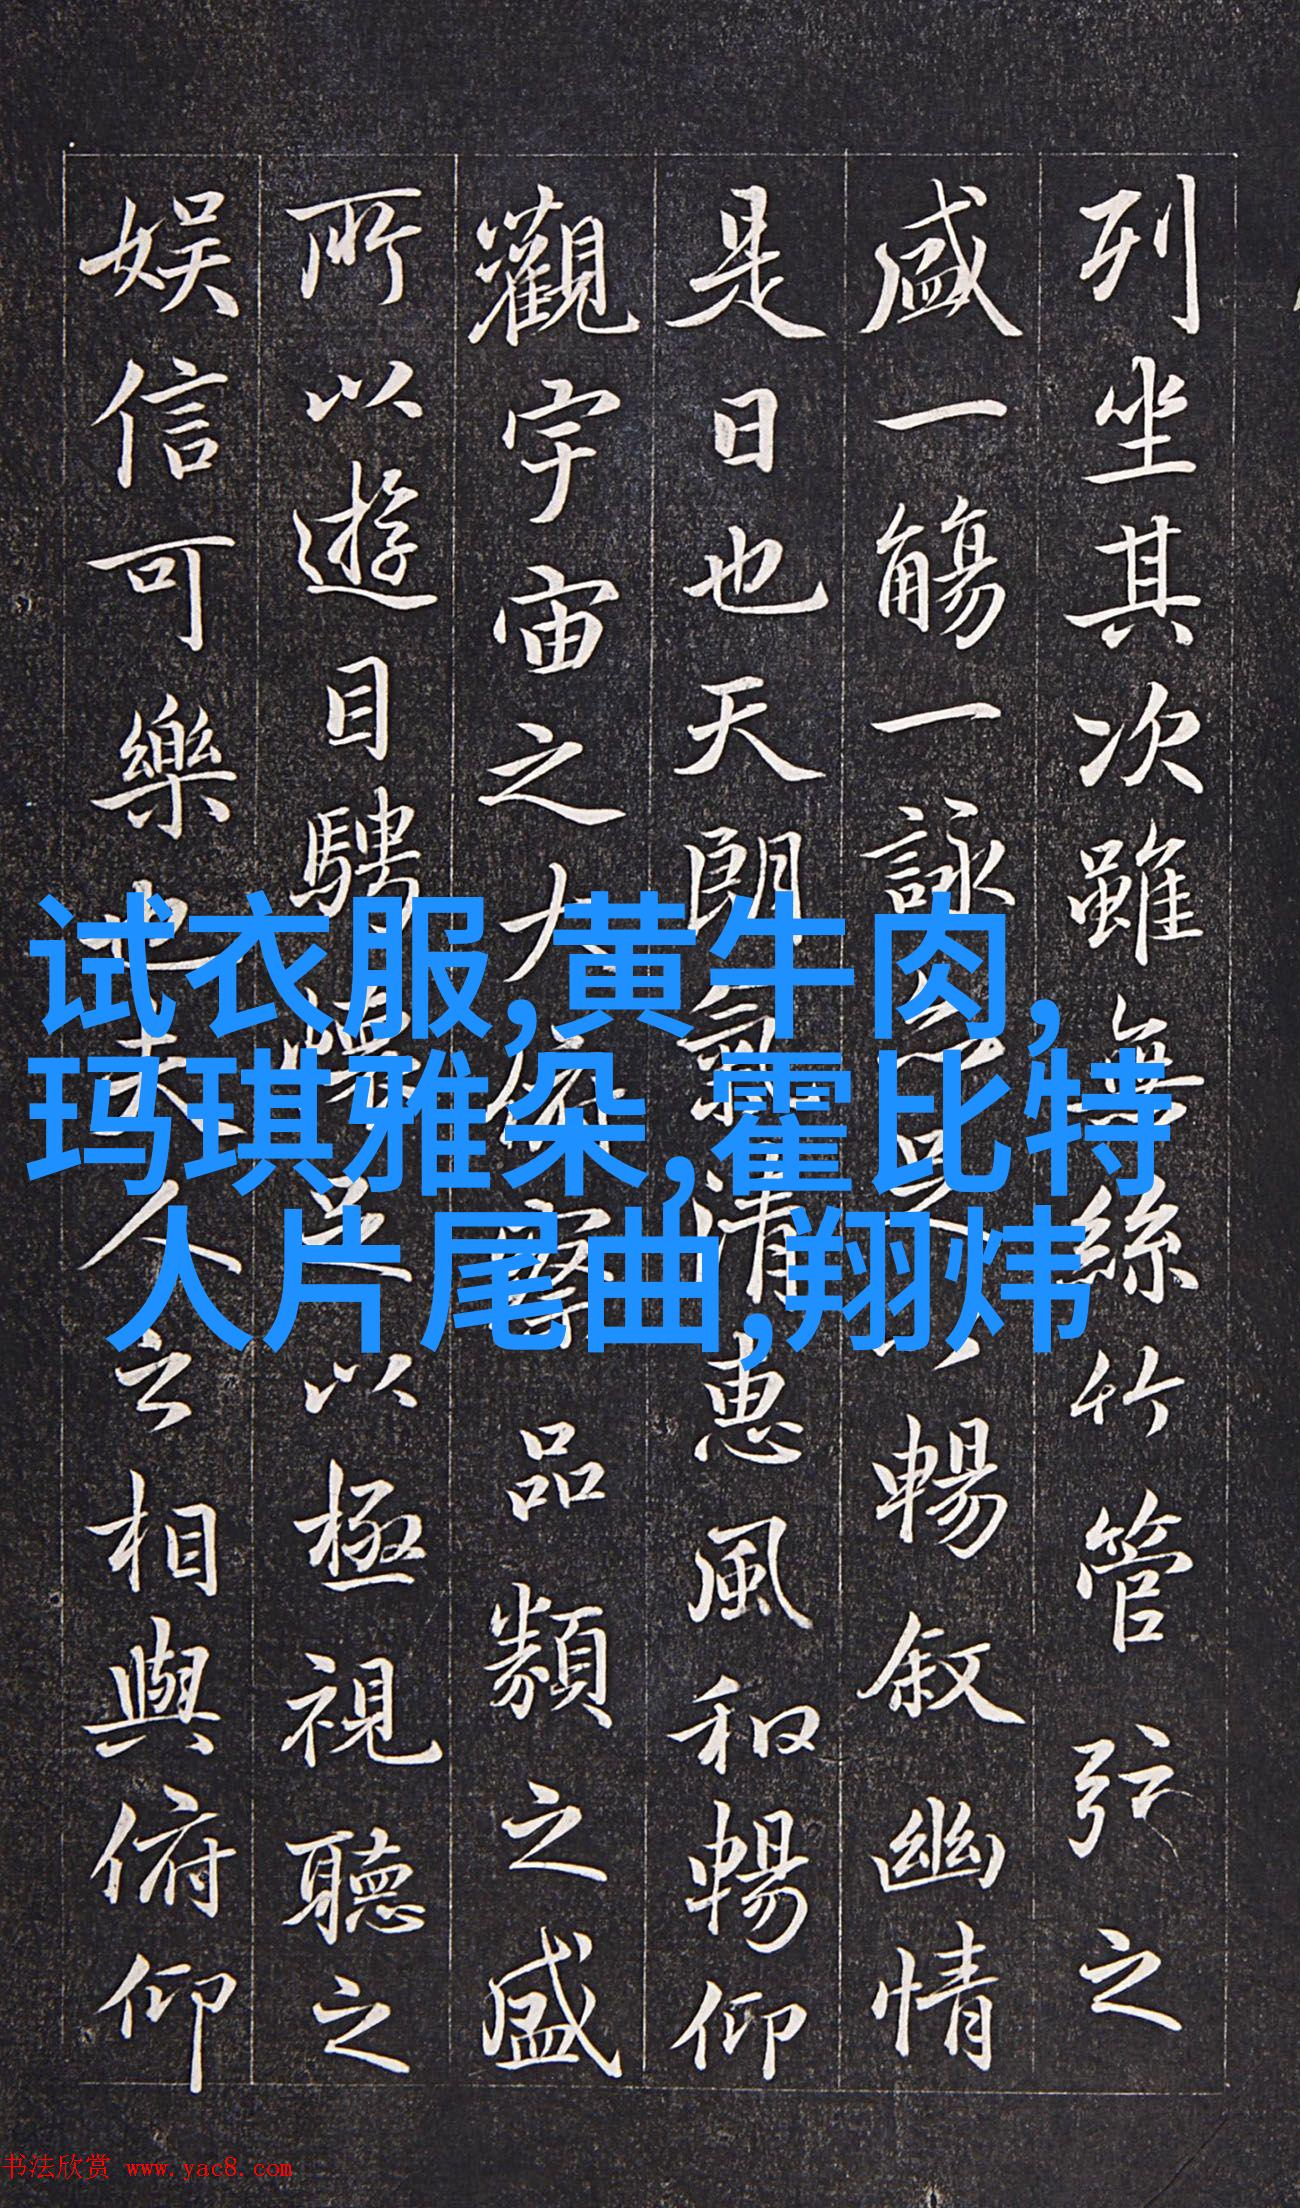 列坐其次雖無絲竹管弦之
盛一觴一詠亦足以暢叙幽情
是日也天朗氣清惠風和暢仰
觀宇宙之大俯察品類之盛
所以遊目騁懷足以極視聽之
娱信可樂也夫人之相與俯仰
试衣服,黄牛肉,
玛琪雅朵,霍比特
人片尾曲,翔炜
书法欣赏 www.yac8.com